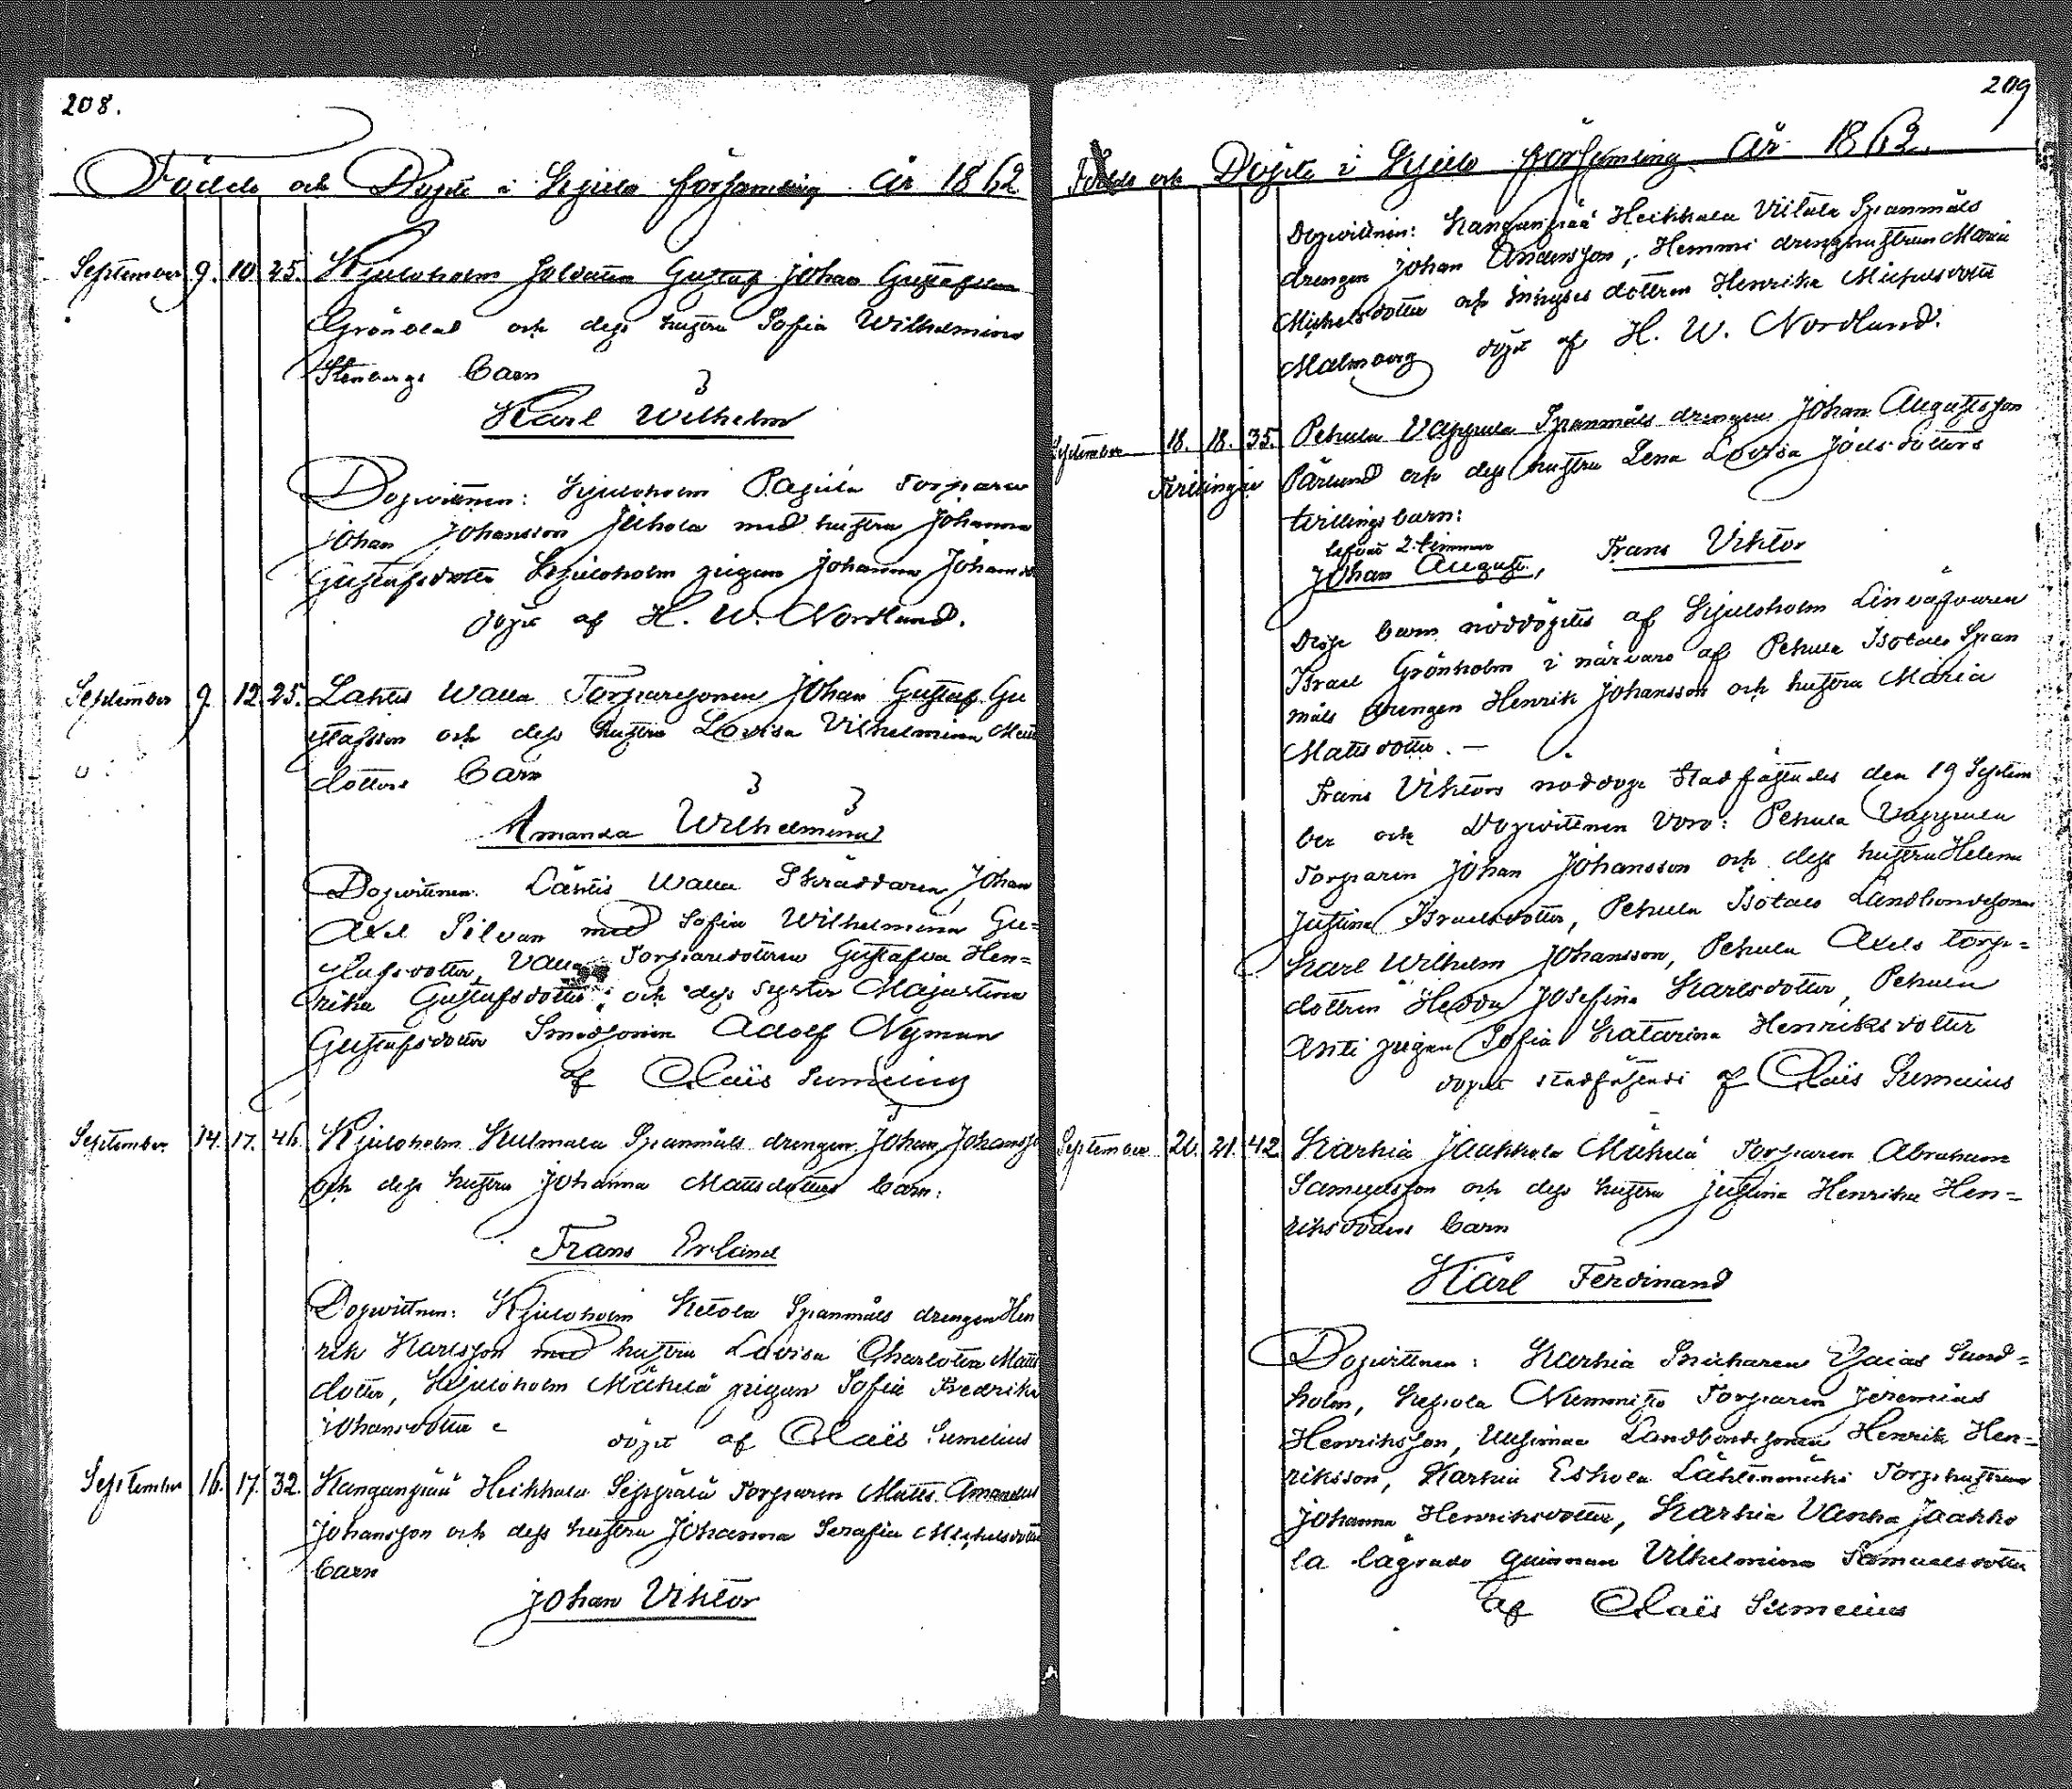 208.
Födde och Döpte i Kjulo församling år 1862
September 9. 10. 25. Kjuloholm Soldaten Gustaf Johan Gustafsson
Gröndal och dess hustru Sofia Wilhelmina
Stenbergs barn
Karl Wilhelm
Dopwittnen: Kjuloholm Torparen
Johan Johansson med hustru Johanna
Gustafsdotter Kjuloholm pigan Johanna Johansd
döpt af H. W. Nordlund.
September 9. 12. 25. Torparesonen Johan Gustaf Gu
stafsson och dess hustru Lovisa Vilhelmina Matts
dotters barn
Amanda Wilhelmina
Dopwittnen: Skräddaren Johan
Axel Silvan med Sofia Wilhelmina Gu=
stafsdotter, Torparedottren Gustafva Hen=
rika Gustafsdotter och dess syster Majastina
Gustafsdotter Smedsonen Adolf Nyman
af Claës Sumelius
September 14. 17. 26. Kjuloholm Kulmala Spanmåls drengen Johan Johansso
och dess hustru Johanna Mattsdotters barn:
Frans Erland
Dopwittnen: Kjuloholm Ketola Spanmåls drengen Hen
rik Karlsson med hustru Lovisa Charlotta Matts
dotter, Kjuloholm Mäkelä pigan Sofia Fredrika
Johansdotter
döpt af Claës Sumelius
September 16. 17. 32. Kanganpää Heikkola Seppälä Torparen Matts Amandus
Johansson och dess hustru Johanna Serafia Michelsdotte
barn
Johan Viktor
209
Födde och Döpte i Kjulo församling år 1862.
Dopwittnen: Kanganpää Heikkola Viitala Spanmåls
drengen Johan Andersson, Hemmi drenghustrun Maria
Michelsdotter och Inhyses dottren Henrika Michelsdotter
Malmberg döpt af H. W. Nordlund.
September 18. 18. 35. Pehula Vappula Spanmåls drengen Johan Augustsson
Pärlund och dess hustru Lena Lovisa Joelsdotters
tvillingsbarn:
lefvat 2 timmar
Johan August, Frans Viktor
Desse barn nöddöptes af Kjuloholm
Israel Grönholm i närvaro af Pehula Isotalo Span
måls drengen Henrik Johansson och hustru Maria
Matts dotter. —
Frans Viktors noddop Stadfästades den 19 Septem
ber och Dopwittnen voro: Pehula Vappula
Torparen Johan Johansson och dess hustru Helena
Justina Israelsdotter, Pehula Isotalo Landbondesonen
Karl Wilhelm Johansson, Pehula Axels torp=
dottren Hedda Josefina Karlsdotter, Pehula
Anti pigan Sofia Katarina Henriksdotter
dopet stadfästadt af Claës Sumelius
September 20. 21. 42 Karhia Jaakkola Mäkelä Torparen Abraham
Samuelsson och dess hustru Justina Henrika Hen=
riksdotters barn
Karl Ferdinand
Dopwittnen: Karhia Snickaren Esaias Sund=
holm, Kepola Nummisto Torparen Jeremias
Henriksson, Landbondesonen Henrik Hen=
riksson, Karhia Eskola Torp hustrun
Johanna Henriksdotter, Karhia Vanha Jaakko
la qvinnan Vilhelmina Samuelsdotter
af Claës Sumelius